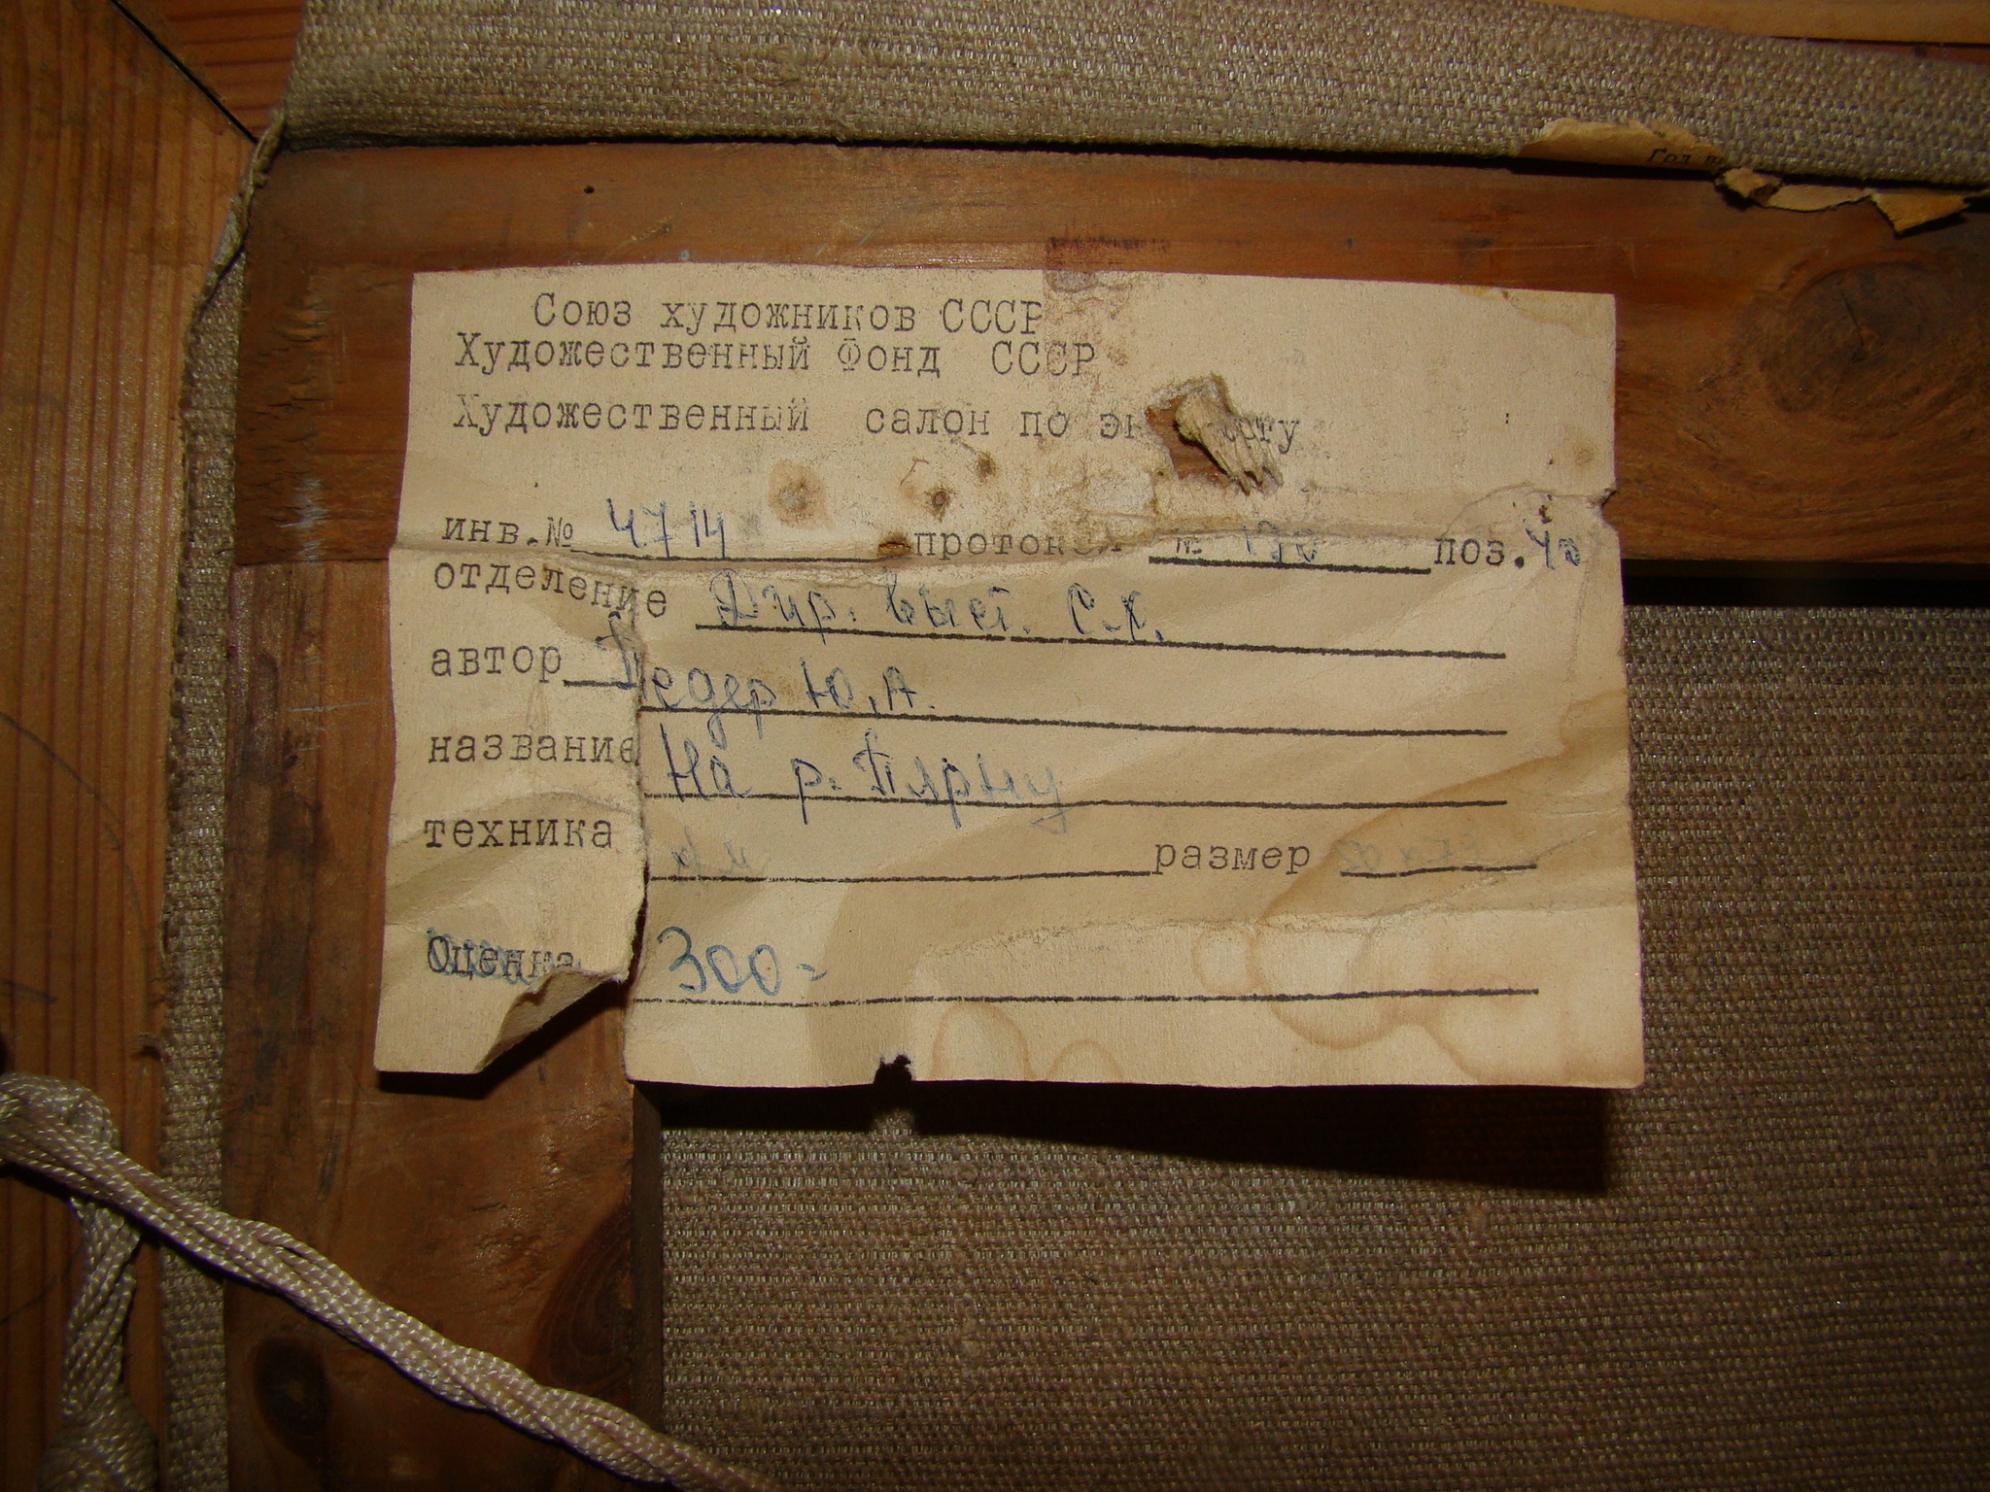 Год
Союз художников СССР
Художественный Фонд СССР
Художественный салон по
инв.№ 4714 протокол № поз.
отделение Дир. выст. С.Х.
автор Педер Ю.А.
название На р. Пярну
техника х/м размер
Оценка 300=